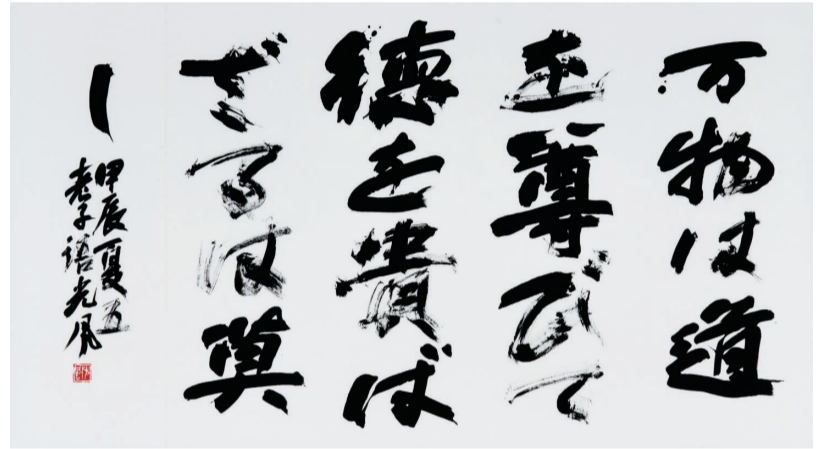 万物は道
を尊びて
徳を貴ば
ざるは莫
し
甲辰夏五
老子語光風